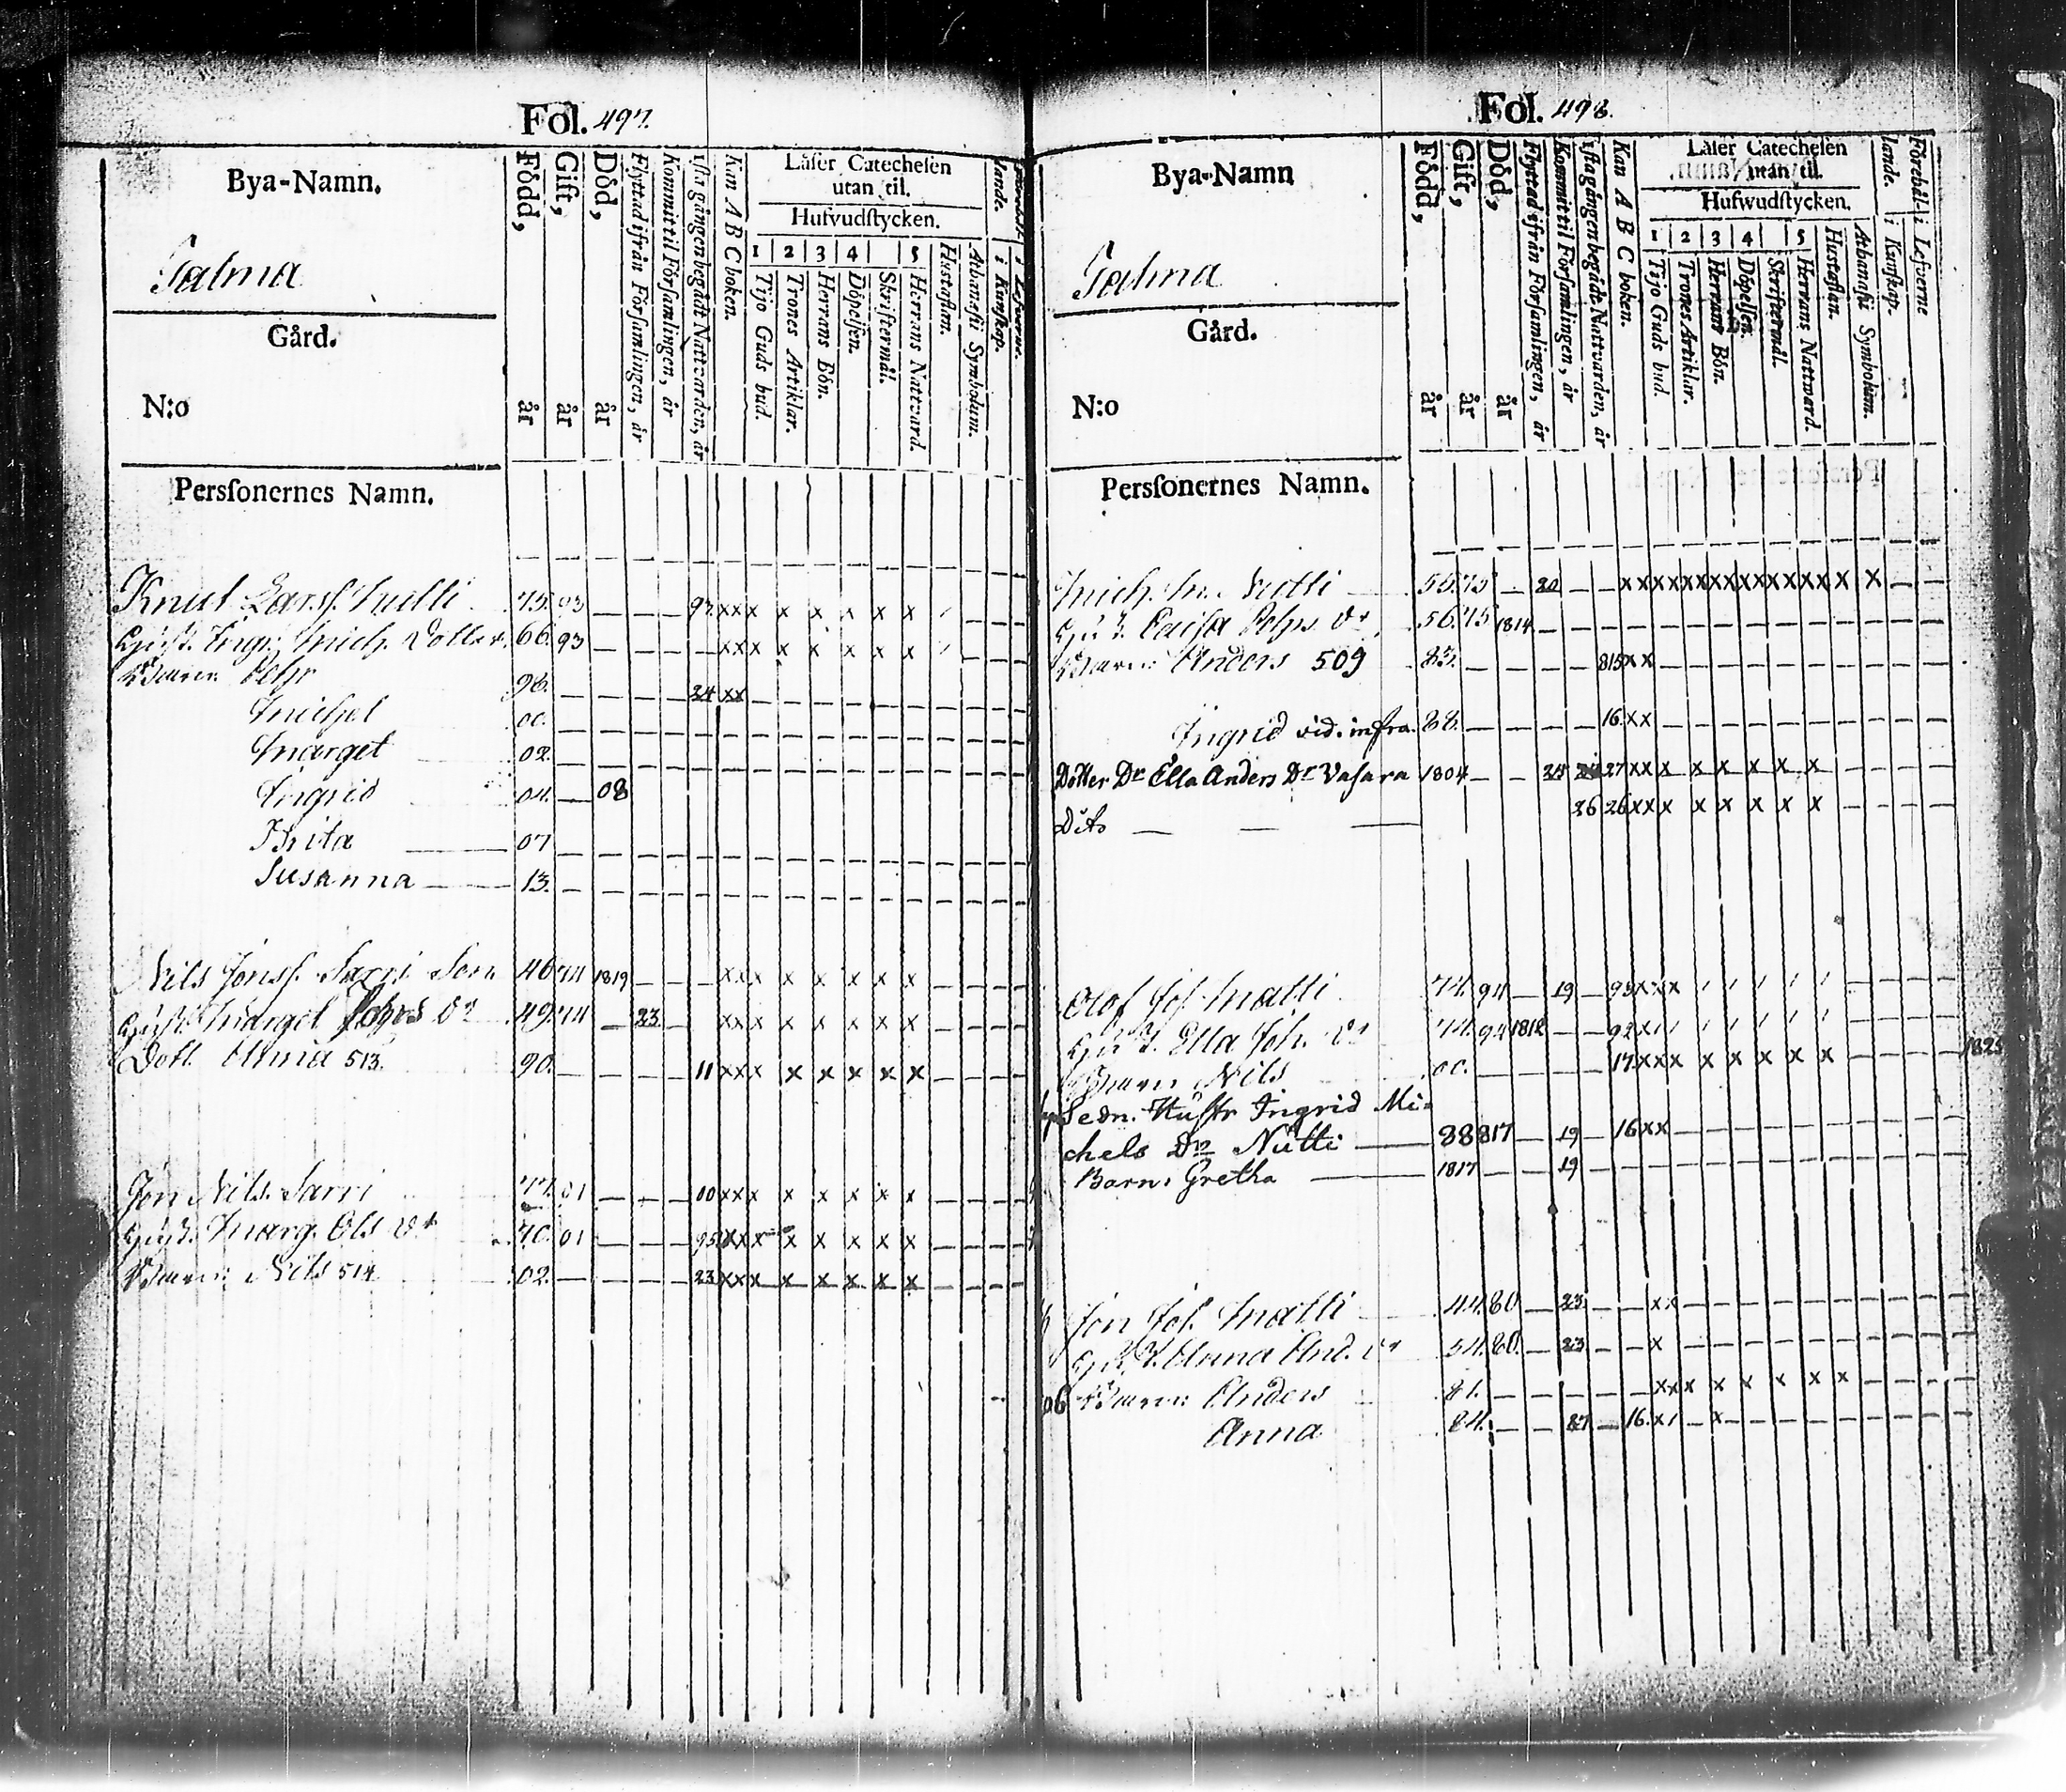 Fol. 497.
Bya-Namn.
Talma
Gård.
N:o
Persſonernes Namn.
Född, år
Gift, år
Död, år
Flyttad ifrån Förſamlingen, år
Kommit til Förſamlingen, år
1ſta gången begådt Nattvarden, år
Kan A B C boken.
Läſer Catecheſen
utan til.
Hufvudſtycken.
1 2 3 4 5
Tijo Guds bud.
Trones Artiklar.
Herrans Bön.
Döpelſen.
Skriftermål.
Herrans Nattvard.
Huſtaflam.
Athanaſii Symbolum.
i Kunſkap.
Knut Larsſ. Nutti 75. 93 — — — 97 x x x x x x x x
Huſt. Ingr. Mich. Dotter. 66. 93 — — — — x x x x x x x x
Barn Pehr 98. — — — — 24 x x
Michel 00.
Marget 02.
Ingrid 04. — 08
Brita 07
Susanna 13.
Nils Jonsſ. Sarri Sen. 46 74 1819 — — x x x x x x x x
Huſt. Marget Pehrs Dr 49. 74 — 23 — x x x x x x x x
Dott. Anna 513. 90. — — — — 11 x x x x x x x x
Jon Nils. Sarri 77. 01 — — — 00 x x x x x x x x
Huſt. Marg. Ols Dr 70. 01 — — — 95 x x x x x x x x
Barn: Nils 514 02. — — — — 23 x x x x x x x x
Fol. 498.
Bya-Namn
Talma
Gård.
N:o
Persſonernes Namn.
Född, år
Gift, år
Död, år
Flyttad ifrån Förſamlingen, år
Kommit til Förſamlingen, år
1ſta gången begådt Nattvarden, år
Kan A B C boken.
Läſer Catecheſen
utan til.
Hufwudſtycken.
1 2 3 4 5
Tijo Guds bud.
Trones Artiklar.
Herrans Bön.
Döpelſen.
Skriftermål.
Herrans Nattward.
Huſtaflan.
Athanaſii Symbolum.
lande. i Kunſkap.
Förehål- i Lefverne
Mich. M. Nutti 55. 75 — 20 — — x x x x x x x x x x x x x x x x
Huſt. Caiſa Pehrs Dr 56. 75 1814
Barn: Anders 509 83. — — — — 815 x x
Ingrid vid. infra. 88. — — — — 16. x x
Dotter Dr Ella Anders Dr Vasara 1804 — — 25 27 x x x x x x x x
Dito — — — 26 26 x x x x x x x x
Olof Joſ. Matti 74. 94 — 19 — 93 x x x
Huſt. Ella Joh. Dr 74. 94 1812 — — 92 x
Barn Nils 00. — — — — 17. x x x x x x x x 1825
Sedn. Huſtr Ingrid Mi-
chels Dr Nutti — 88 817 — 19 — 16 x x
Barn: Gretha — 1817 — — 19
Jon Joſ. Matti 44. 80 — 23 — — x x
Huſt. Anna And. Dr 54. 80. — 23 — — x
Barn: Anders 81. — — — — — x x x x x x x x
Anna 84. — — 27 — 16. x — x